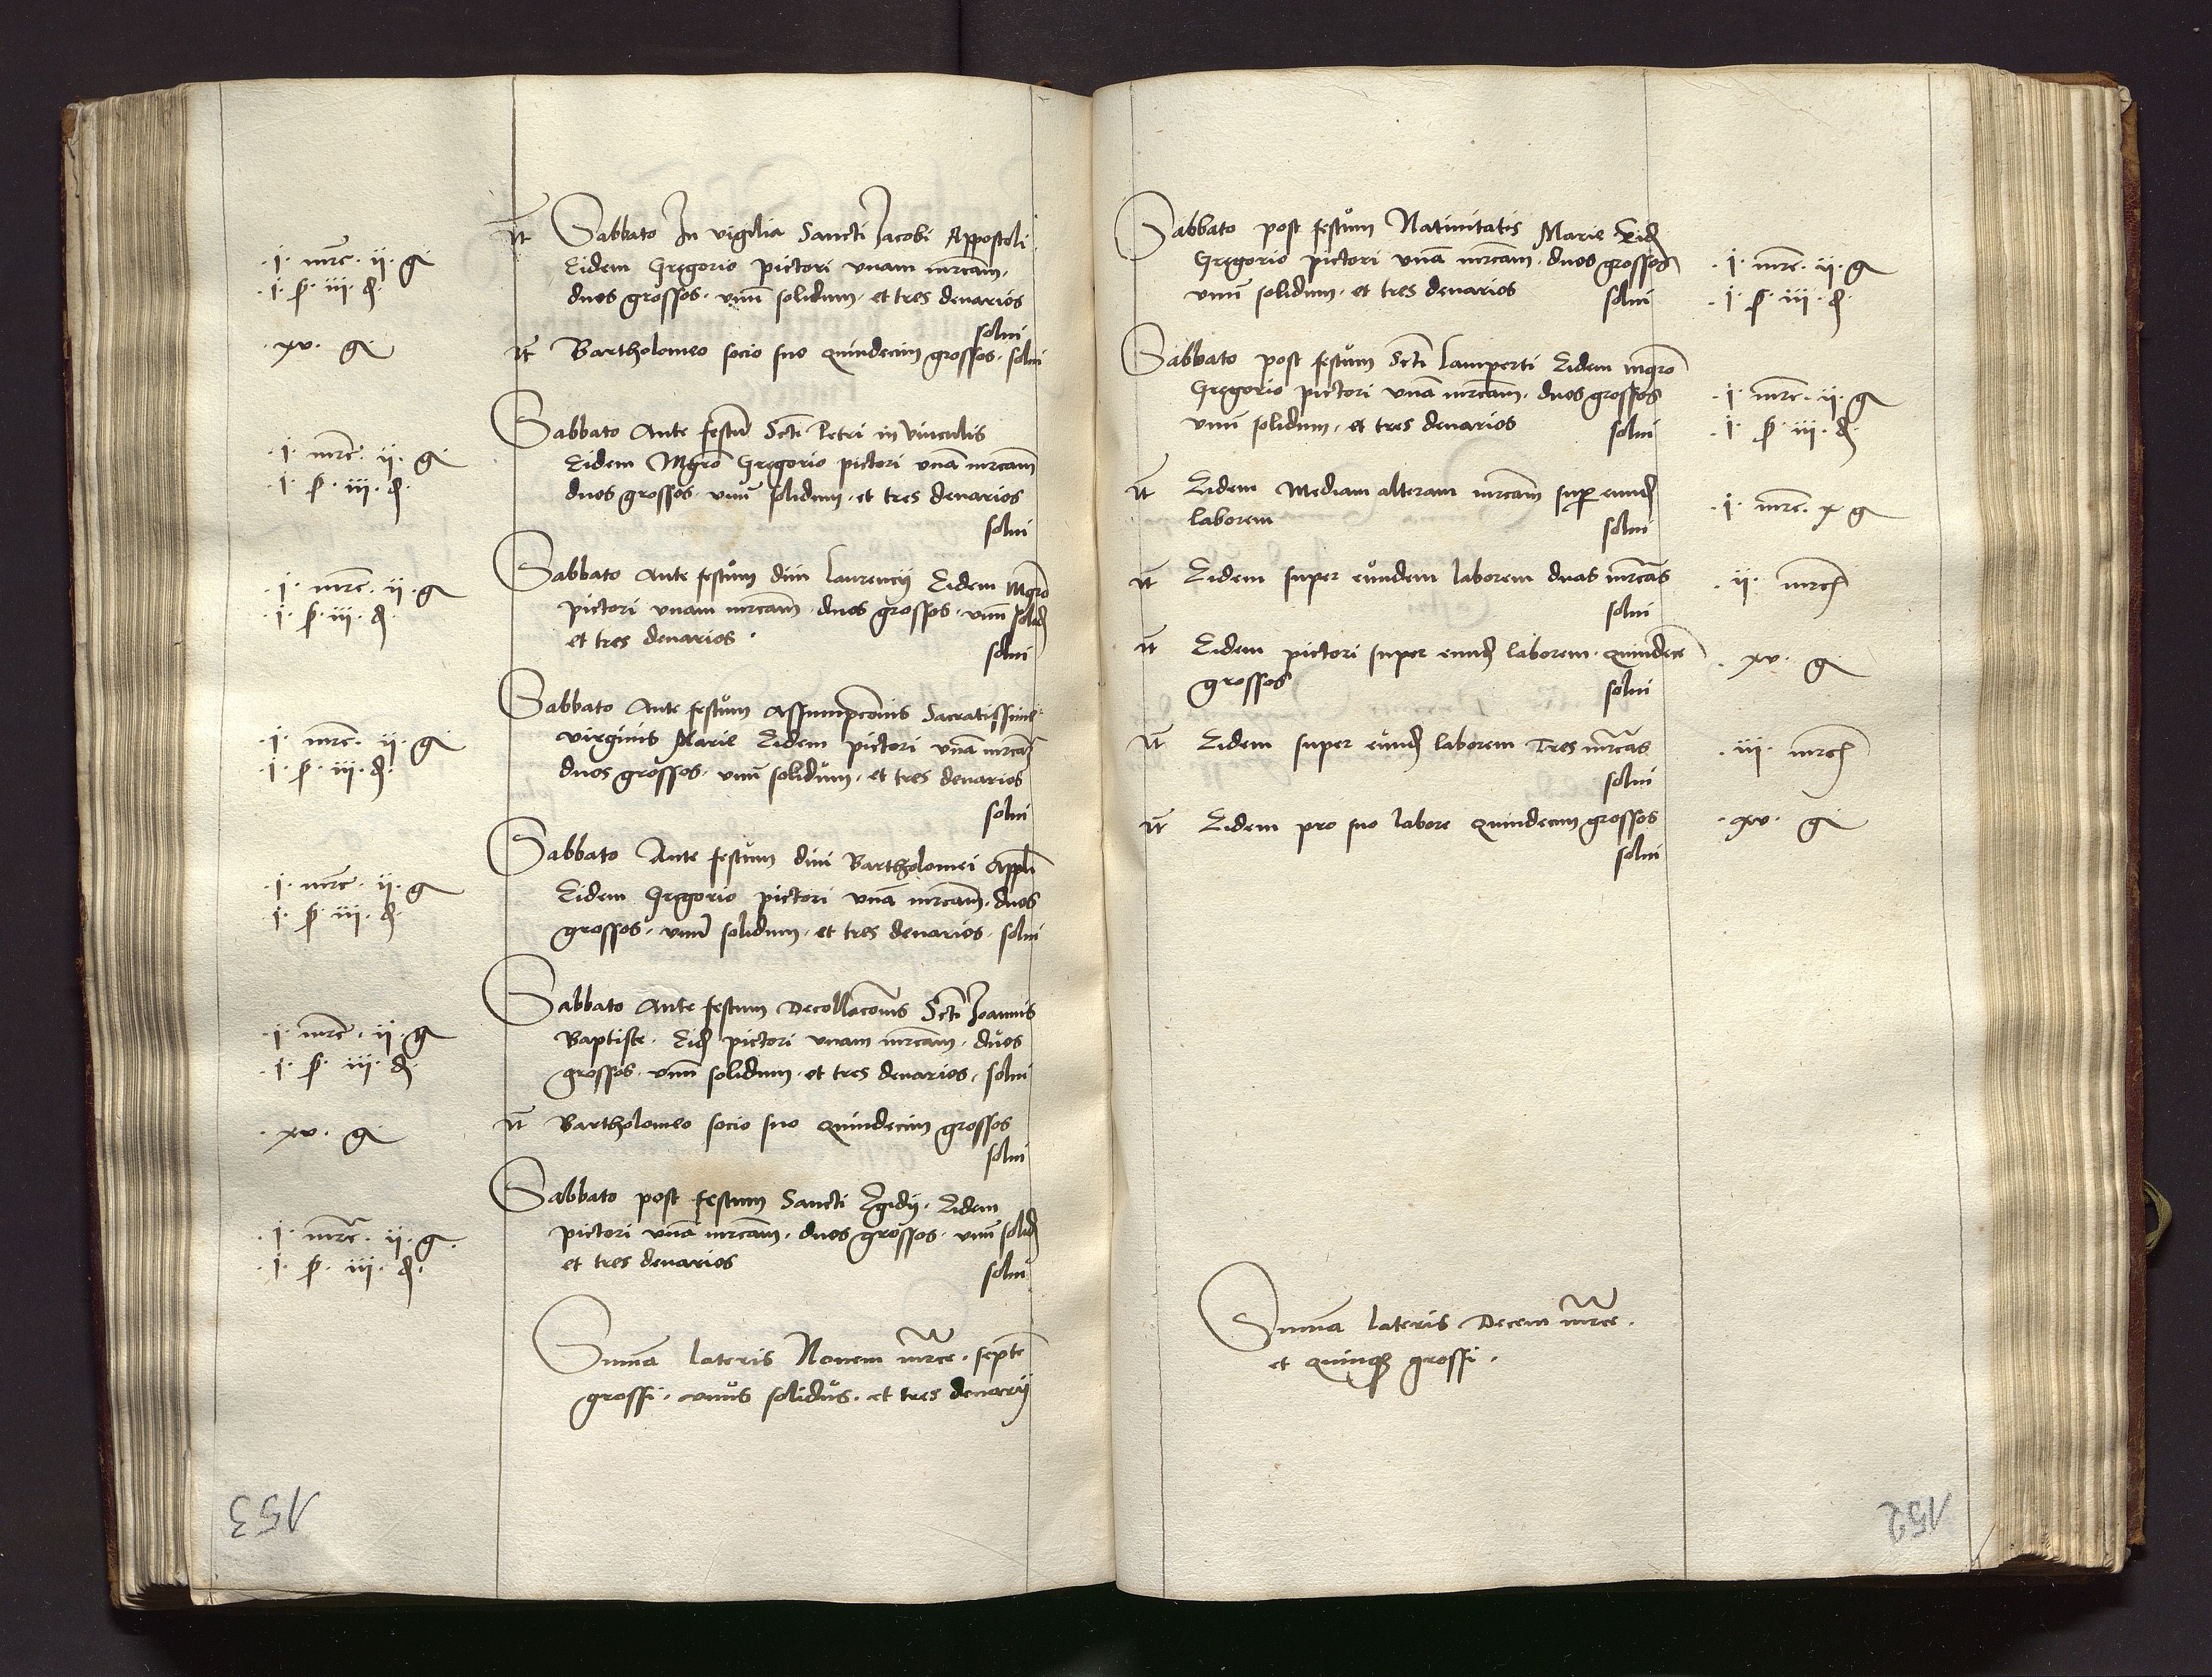 ·j· mrc̄· ij· g
·j· ß· iij· ₰·
It̄ Sabbato In vigilia Sancti Jacobi Appostoli
Eidem Gregorio pictori vnam mrcam·
duos grossos· vnū solidum· et tres denarios
solui
·xv· g
It̄ Bartholomeo socio suo quindecim grossos· solui
·j· mrc̄· ij· g
·j· ß· iij· ₰·
Sabbato Ante festū Scti Petri in vinculis
Eidem Mgro Gregorio pictori vnā mrcam
duos grossos· vnū solidum· et tres denarios
solui
·j· mrc̄· ij· g
·j· ß· iij· ₰·
Sabbato Ante festum diui Laurencij Eidem Mgro
pictori vnam mrcam· duos grossos· vnū solid
et tres denarios·
solui
·j· mrc̄· ij· g
·j· ß· iij· ₰·
Sabbato Ante festum Assumpcōnis Sacratissime
virginis Marie Eidem pictori vnā mrcam
duos grossos· vnū solidum· et tres denarios
solui
·j· mrc̄· ij· g
·j· ß· iij· ₰·
Sabbato Ante festum diui Bartholomei Appli
Eidem Gregorio pictori vnā mrcam· duos
grossos· vnū solidum· et tres denarios· solui
·j· mrc̄· ij· g
·j· ß· iij· ₰·
Sabbato Ante festum Decollacōnis Scti Joannis
Baptiste· Eid pictori vnam mrcam· duos
grossos· vnū solidum· et tres denarios· solui
·xv· g
It̄ Bartholomeo socio suo quindecim grossos
solui
·j· mrc̄· ij· g·
·j· ß· iij· ₰·
Sabbato post festum Sancti Egidij· Eidem
pictori vnā mrcam· duos grossos· vnū solid
et tres denarios
solui
Suma lateris Nouem mrce· septē
grossi· vnus solidus· et tres denarij
153
Sabbato post festum Natiuitatis Marie Eid
Gregorio pictori vnā mrcam· duos grossos
vnū solidum· et tres denarios solui
·j· mrc̄· ij· g
·j· ß· iij· ₰·
Sabbato post festum Scti Lamperti Eidem mgro
Gregorio pictori vnā mrcam· duos grossos
vnū solidum· et tres denarios solui
·j· mrc̄· ij· g
·j· ß· iij· ₰·
It̄ Eidem Mediam alteram mrcam sup eund
laborem solui
·j· mrc̄· x g
It̄ Eidem super eundem laborem duas mrcas
solui
·ij· mrc
It̄ Eidem pictori super eund laborem· quindecē
grossos solui
·xv· g
It̄ Eidem super eund laborem Tres mrcas
solui
·iij· mrc
It̄ Eidem pro suo labore quindecim grossos
solui
·xv· g
Suma lateris Decem mrce·
et quinq grossi·
152